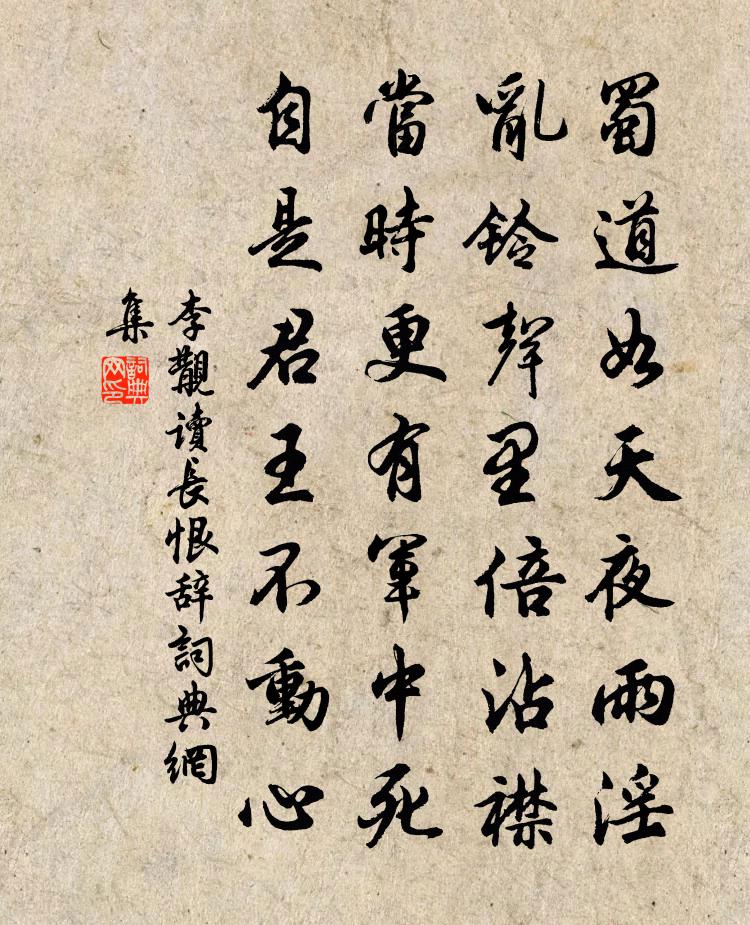 蜀道如天夜雨淫
亂鈴聲里倍沾襟
當時更有軍中死
自是君王不動心
李覯读長恨辞詞典網
集
詞典
网印